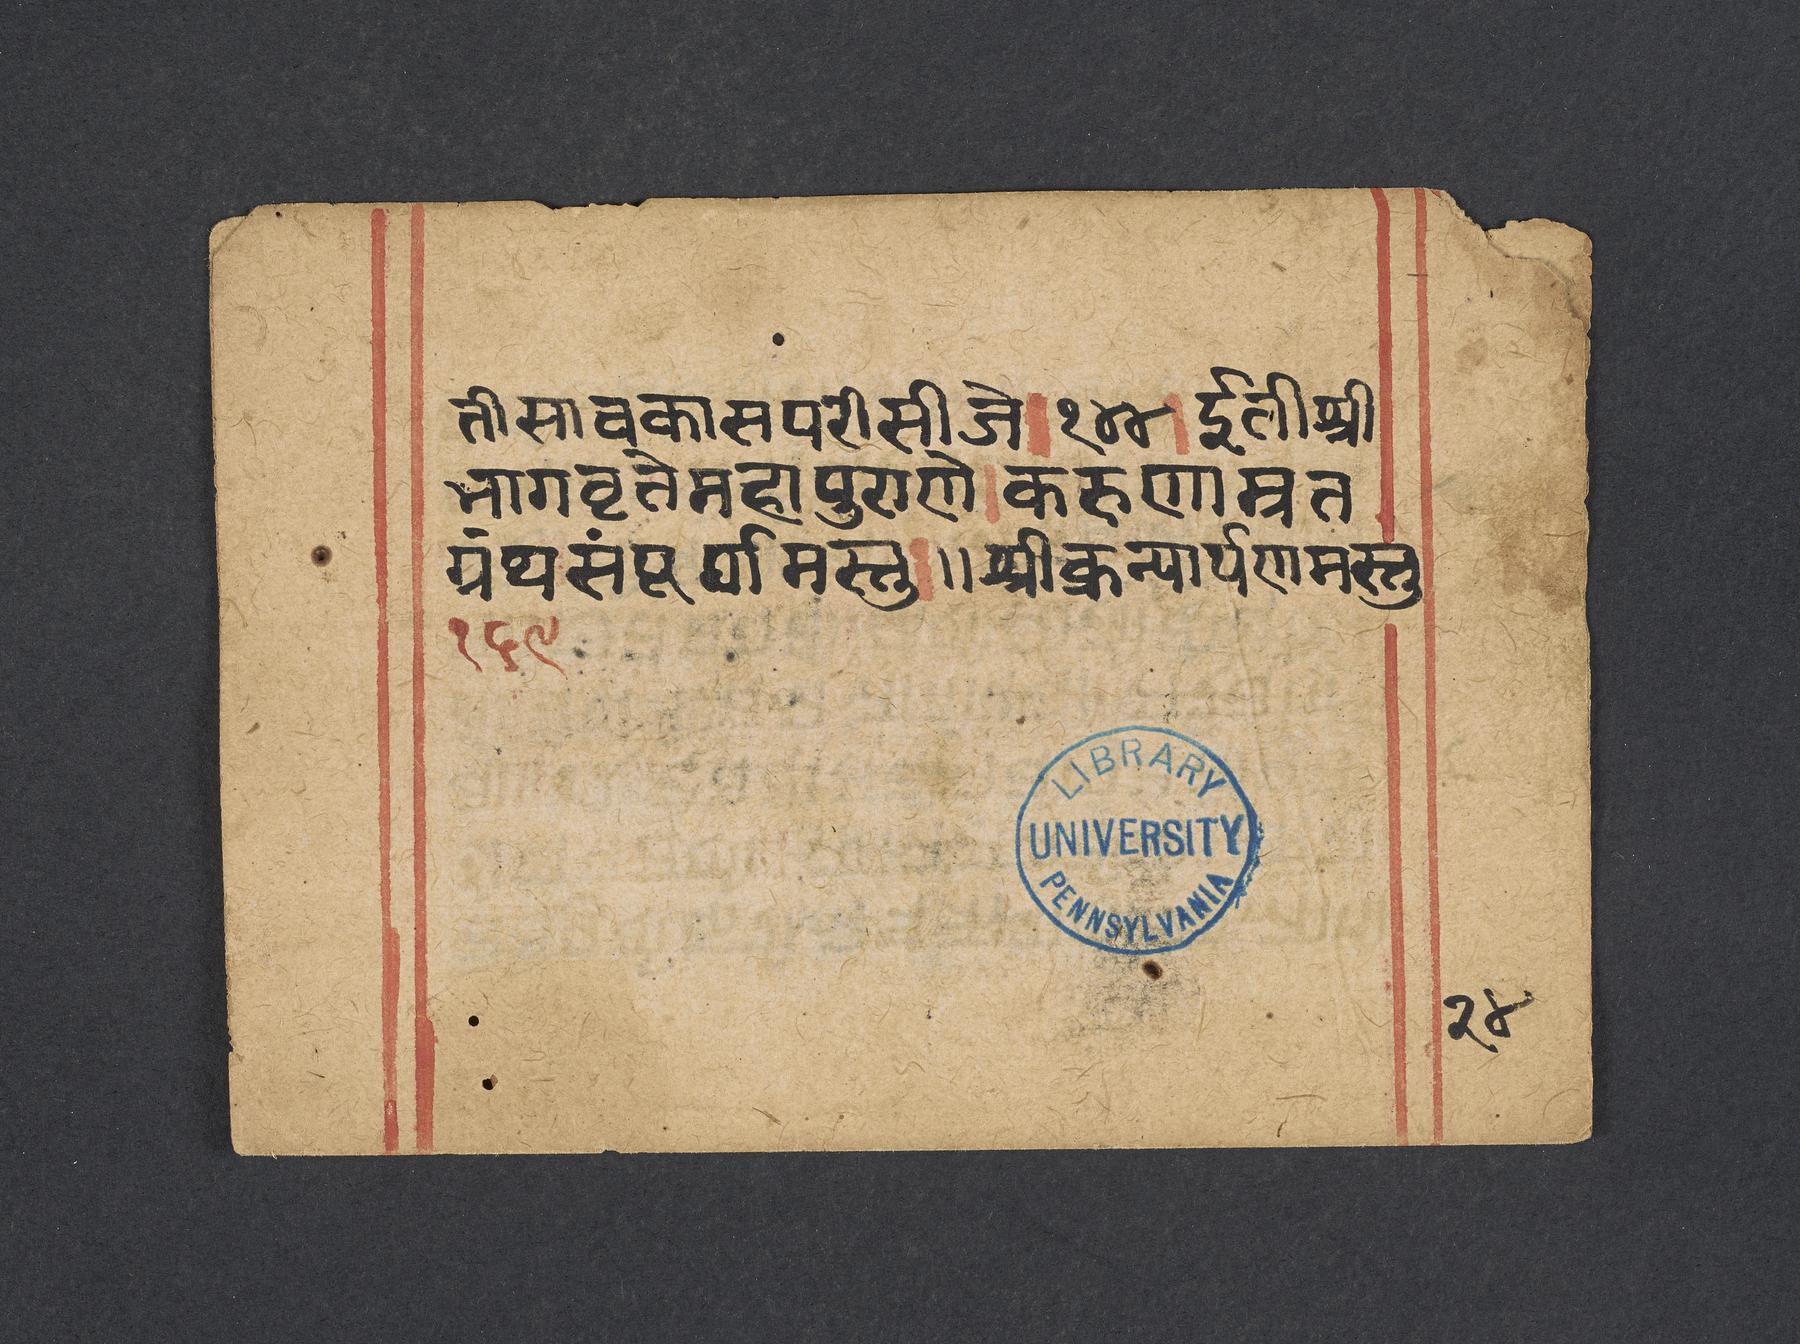 तीसावकासपरीसीजे।१४४।ईतीश्री
भागवृतेमहापुराणे।करुणाम्रत
ग्रंथसंपूर्णमस्तु।॥श्रीक्रन्यार्पणमस्तु
१६९
LIBRARY
UNIVERSITY
PENNSYLVANIA
२४